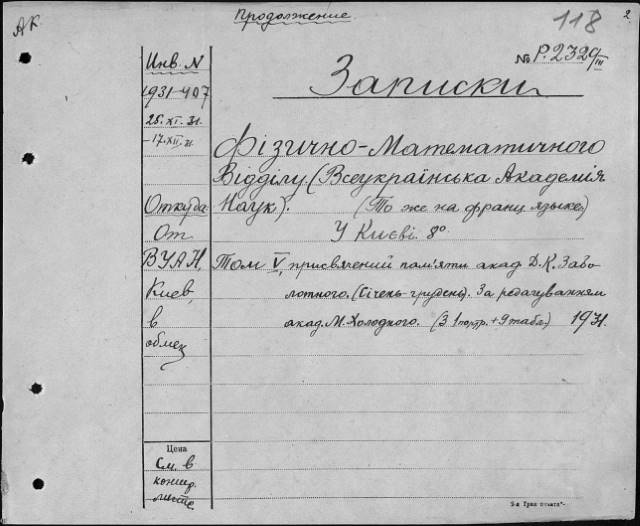 АК
Продолжение
118
2.
№ Р.2329/III
Инв. N
1931-407
25.XI.31.
-17.XII.31
Откуда
От
ВУАН,
Киев,
в
обмен
Цена
См. в
концр.
листе
Записки
Фізично-Математичного
Відділу. (Всеукраїнська Академія
Наук). (То же на франц. языке.)
У Києві. 8°
Том V, присвячений пам'яти акад. Д.К. Забо-
лотного. (Січень-грудень). За редагуванням
акад. М. Холодного. (З 1 портр. + 9 табл.) 1931.